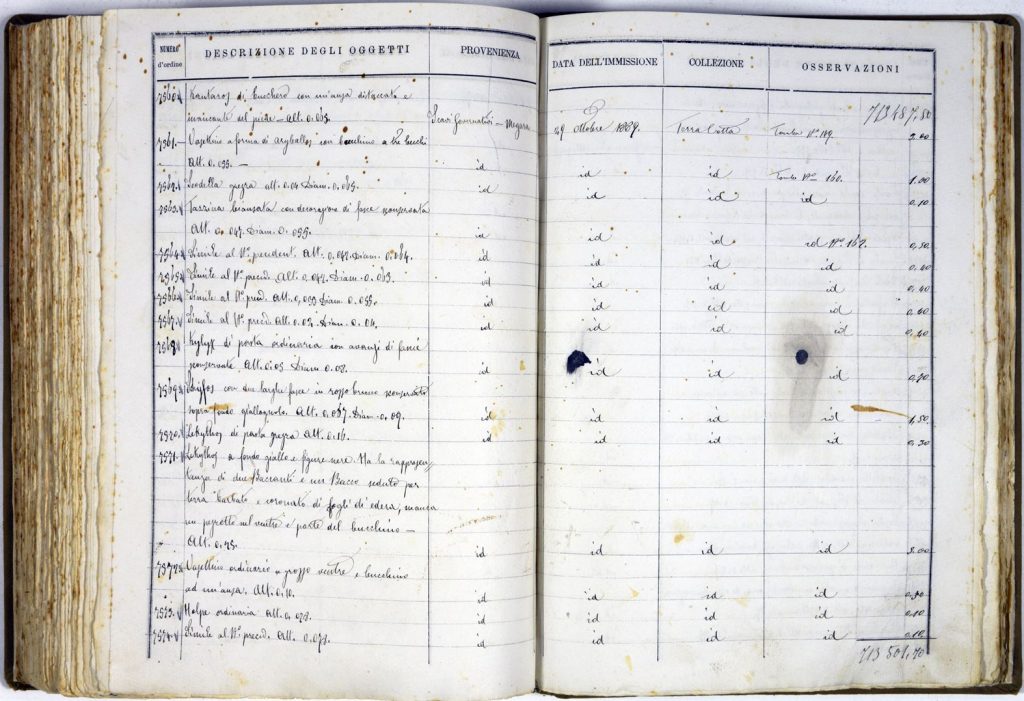 NUMERO d'ordine DESCRIZIONE DEGLI OGGETTI PROVENIENZA DATA DELL'IMMISSIONE COLLEZIONE OSSERVAZIONI
713487.80
7560 Kantaros di bucchero con un'ansa distaccata e
mancante del piede — Alt. 0.065. Scavi Governativi — Megara 29 Ottobre 1889. Terra Cotta Tomba N° 2.00
7561 Vasettino a forma di aryballos con bocchino a tre becchi
Alt. 0.055. — id id id Tomba N° 160. 1.00
7562 Scodella grezza alt. 0.04 Diam. 0.065. id id id id 0,10
7563 Tazzina biansata con decorazione di fasce conservata
Alt. 0.047. Diam. 0.055. id id id id N° 162. 0,50
7564 Simile al N° precedent. Alt. 0.042. Diam. 0.064. id id id id 0,40
7565 Simile al N° preced. Alt. 0.042. Diam. 0.063. id id id id 0,40
7566 Simile al N° preced. Alt. 0,033 Diam. 0.055. id id id id 0,40
7567 Simile al N° preced. Alt. 0.03. Diam. 0.04. id id id id 0,40
7568 Kylyx di pasta ordinaria con avanzi di fascie
conservate Alt. 0.05 Diam. 0.08. id id id id
7569 Skyfos con due larghe fasce in rosso bruno conservato
sopra fondo giallognolo. Alt. 0.067. Diam. 0.09. id id id id 1,50
7570 Lekythos di pasta grezza Alt. 0.16. id id id id 0,30
7571 Lekythos a fondo giallo e figure nere. Ha la rappresen-
tanza di due Baccanti e un Bacco seduto per
terra barbato e coronato di fogli di edera; manca
un pezzotto nel ventre e parte del bucchino —
Alt. 0.15. id id id id
7572 Vasettino ordinario a grosso ventre e bucchino
ad un'ansa. Alt. 0.10. id id id id
7573 Holpe ordinaria Alt. 0.073. id id id id 0,10
7574 Simile al N° preced. Alt. 0.073. id id id id 0,10
713 501,70